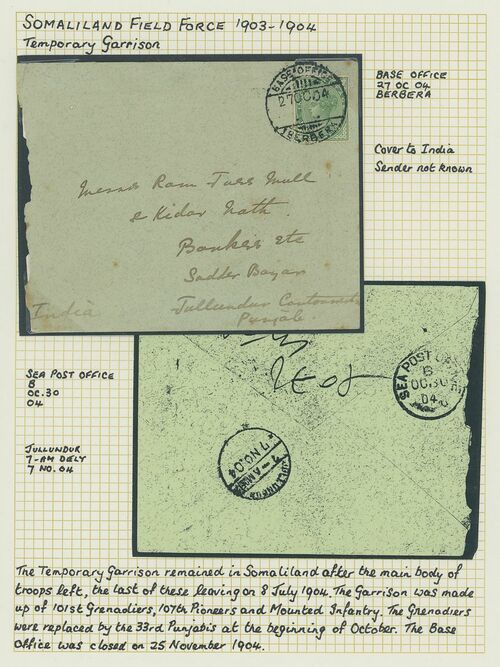 SOMALILAND FIELD FORCE 1903-1904
Temporary Garrison
BASE OFFICE
27 OC 04
BERBERA
BASE OFFICE
27 OC 04
BERBERA
Cover to India
Sender not known
Messrs Ram Mull
& Kidar Nath
Bankers etc
Sadder Bazar
Jullundur Cantonment
Punjab
India
SEA POST OFFICE
B
OC.30
04
SEA POST
B
OC.30
04
JULLUNDUR
7-AM DELY
7 NO. 04
JULLUNDUR
7-AM
7 NO.04
The Temporary Garrison remained in Somaliland after the main body of
troops left, the last of these leaving on 8 July 1904. The Garrison was made
up of 101st Grenadiers, 107th Pioneers and Mounted Infantry. The Grenadiers
were replaced by the 33rd Punjabis at the beginning of October. The Base
Office was closed on 25 November 1904.